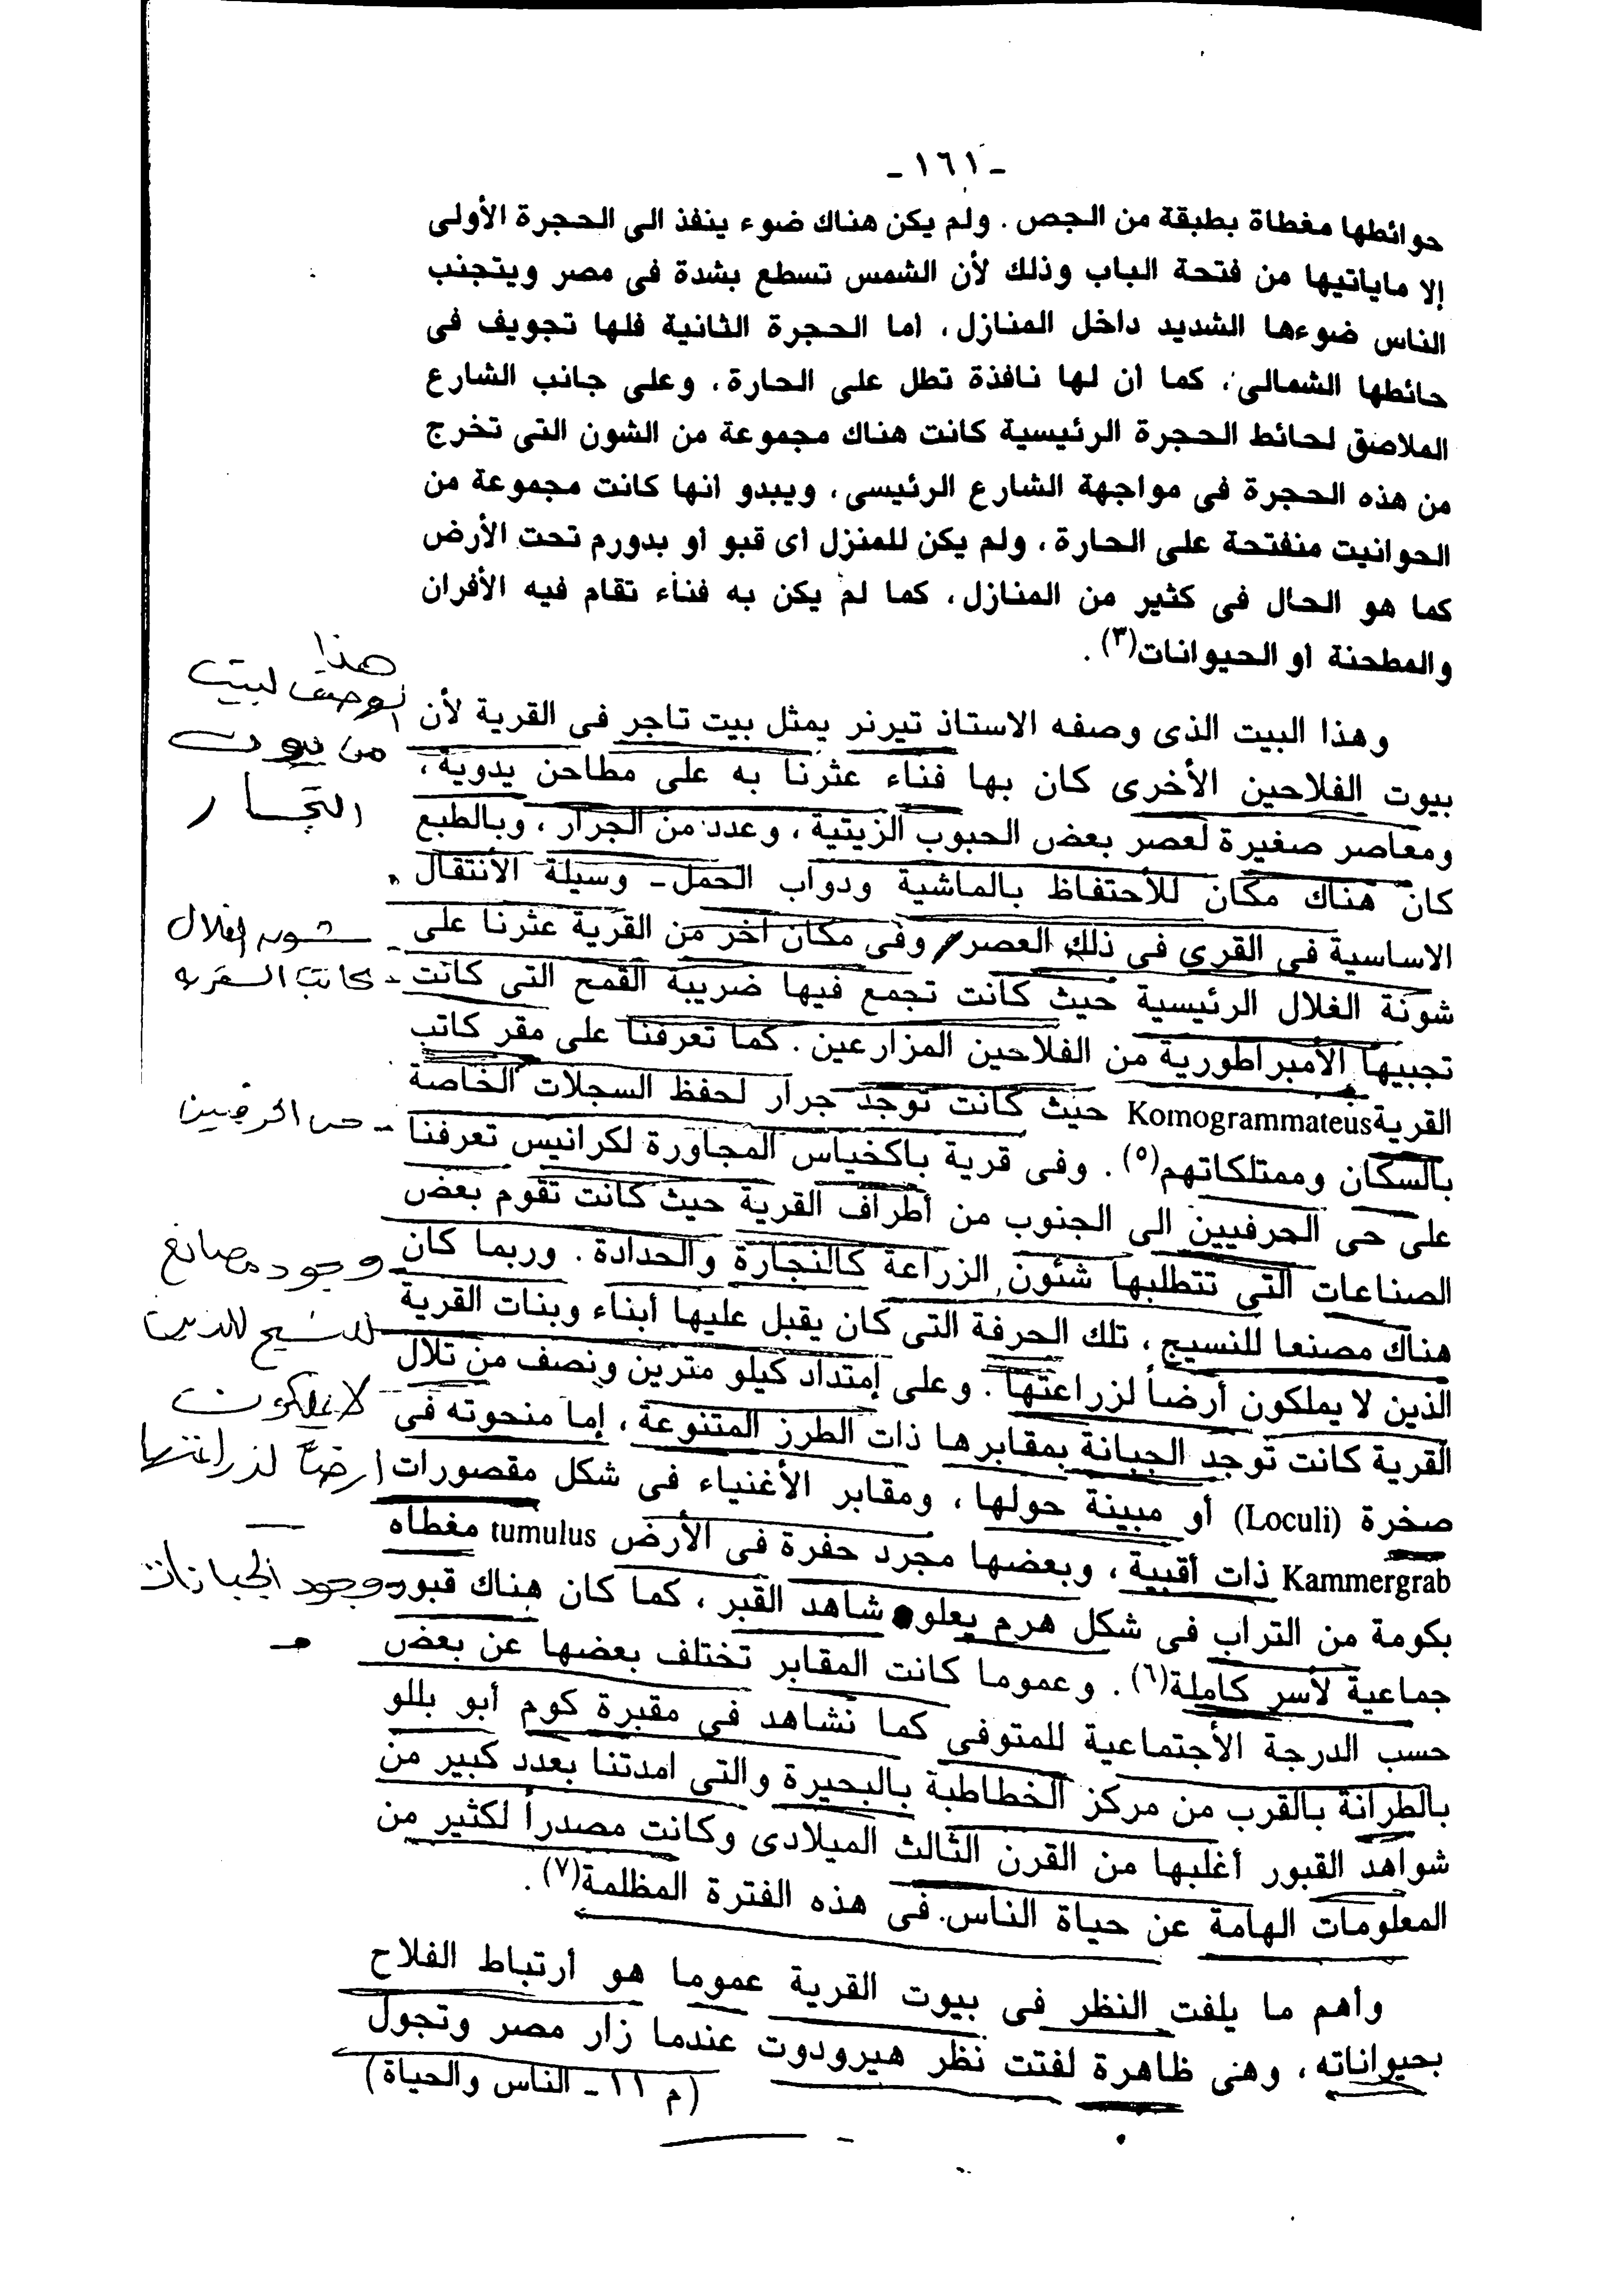 - ١٦١ -
حوائطها مغطاة بطبقة من الجص . ولم يكن هناك ضوء ينفذ الى الحجرة الأولى
إلا ماياتيها من فتحة الباب وذلك لأن الشمس تسطع بشدة فى مصر ويتجنب
الناس ضوءها الشديد داخل المنازل، اما الحجرة الثانية فلها تجويف فى
حائطها الشمالى، كما ان لها نافذة تطل على الحارة، وعلى جانب الشارع
الملاصق لحائط الحجرة الرئيسية كانت هناك مجموعة من الشون التى تخرج
من هذه الحجرة فى مواجهة الشارع الرئيسى، ويبدو انها كانت مجموعة من
الحوانيت منفتحة على الحارة، ولم يكن للمنزل اى قبو او بدورم تحت الأرض
كما هو الحال فى كثير من المنازل، كما لم يكن به فناء تقام فيه الأفران
والمطحنة او الحيوانات(٣) .
هذا
الوصف لبيت
من بيوت
التجار
وهذا البيت الذى وصفه الاستاذ تيرنر يمثل بيت تاجر فى القرية لأن
بيوت الفلاحين الأخرى كان بها فناء عثرنا به على مطاحن يدوية،
ومعاصر صغيرة لعصر بعض الحبوب الزيتية، وعدد من الجرار، وبالطبع
كان هناك مكان للأحتفاظ بالماشية ودواب الحمل - وسيلة الأنتقال
الاساسية فى القرى فى ذلك العصر وفى مكان آخر من القرية عثرنا على
شونة الغلال الرئيسية حيث كانت تجمع فيها ضريبة القمح التى كانت
تجبيها الأمبراطورية من الفلاحين المزارعين . كما تعرفنا على مقر كاتب
القرية Komogrammateus حيث كانت توجد جرار لحفظ السجلات الخاصة
بالسكان وممتلكاتهم(٥) . وفى قرية باكخياس المجاورة لكرانيس تعرفنا
على حى الحرفيين الى الجنوب من أطراف القرية حيث كانت تقوم بعض
الصناعات التى تتطلبها شئون الزراعة كالنجارة والحدادة . وربما كان
هناك مصنعا للنسيج، تلك الحرفة التى كان يقبل عليها أبناء وبنات القرية
الذين لا يملكون أرضاً لزراعتها . وعلى إمتداد كيلو مترين ونصف من تلال
القرية كانت توجد الجبانة بمقابرها ذات الطرز المتنوعة، إما منحوته فى
صخرة (Loculi) أو مبينة حولها، ومقابر الأغنياء فى شكل مقصورات
Kammergrab ذات أقبية، وبعضها مجرد حفرة فى الأرض tumulus مغطاه
بكومة من التراب فى شكل هرم يعلو شاهد القبر، كما كان هناك قبور
جماعية لأسر كاملة(٦) . وعموما كانت المقابر تختلف بعضها عن بعض
حسب الدرجة الأجتماعية للمتوفى كما نشاهد فى مقبرة كوم أبو بللو
بالطرانة بالقرب من مركز الخطاطبة بالبحيرة والتى امدتنا بعدد كبير من
شواهد القبور أغلبها من القرن الثالث الميلادى وكانت مصدراً لكثير من
المعلومات الهامة عن حياة الناس فى هذه الفترة المظلمة(٧) .
شونه الغلال -
كاتب القريه -
حى الحرفيين -
وجود مصانع
للنسيج للذين
لا يملكون
ارضاً لزراعتها
وجود الجبانات
وأهم ما يلفت النظر فى بيوت القرية عموما هو أرتباط الفلاح
بحيواناته، وهى ظاهرة لفتت نظر هيرودوت عندما زار مصر وتجول
(م ١١ - الناس والحياة)